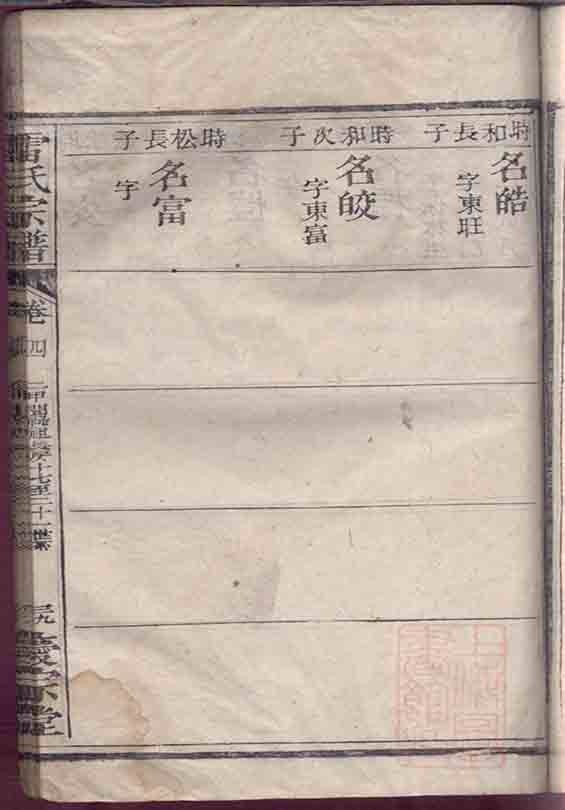 時和長子
名皓
字東旺
時和次子
名皎
字東富
時松長子
名富
字
雷氏宗譜
卷四
十七至二十一世系